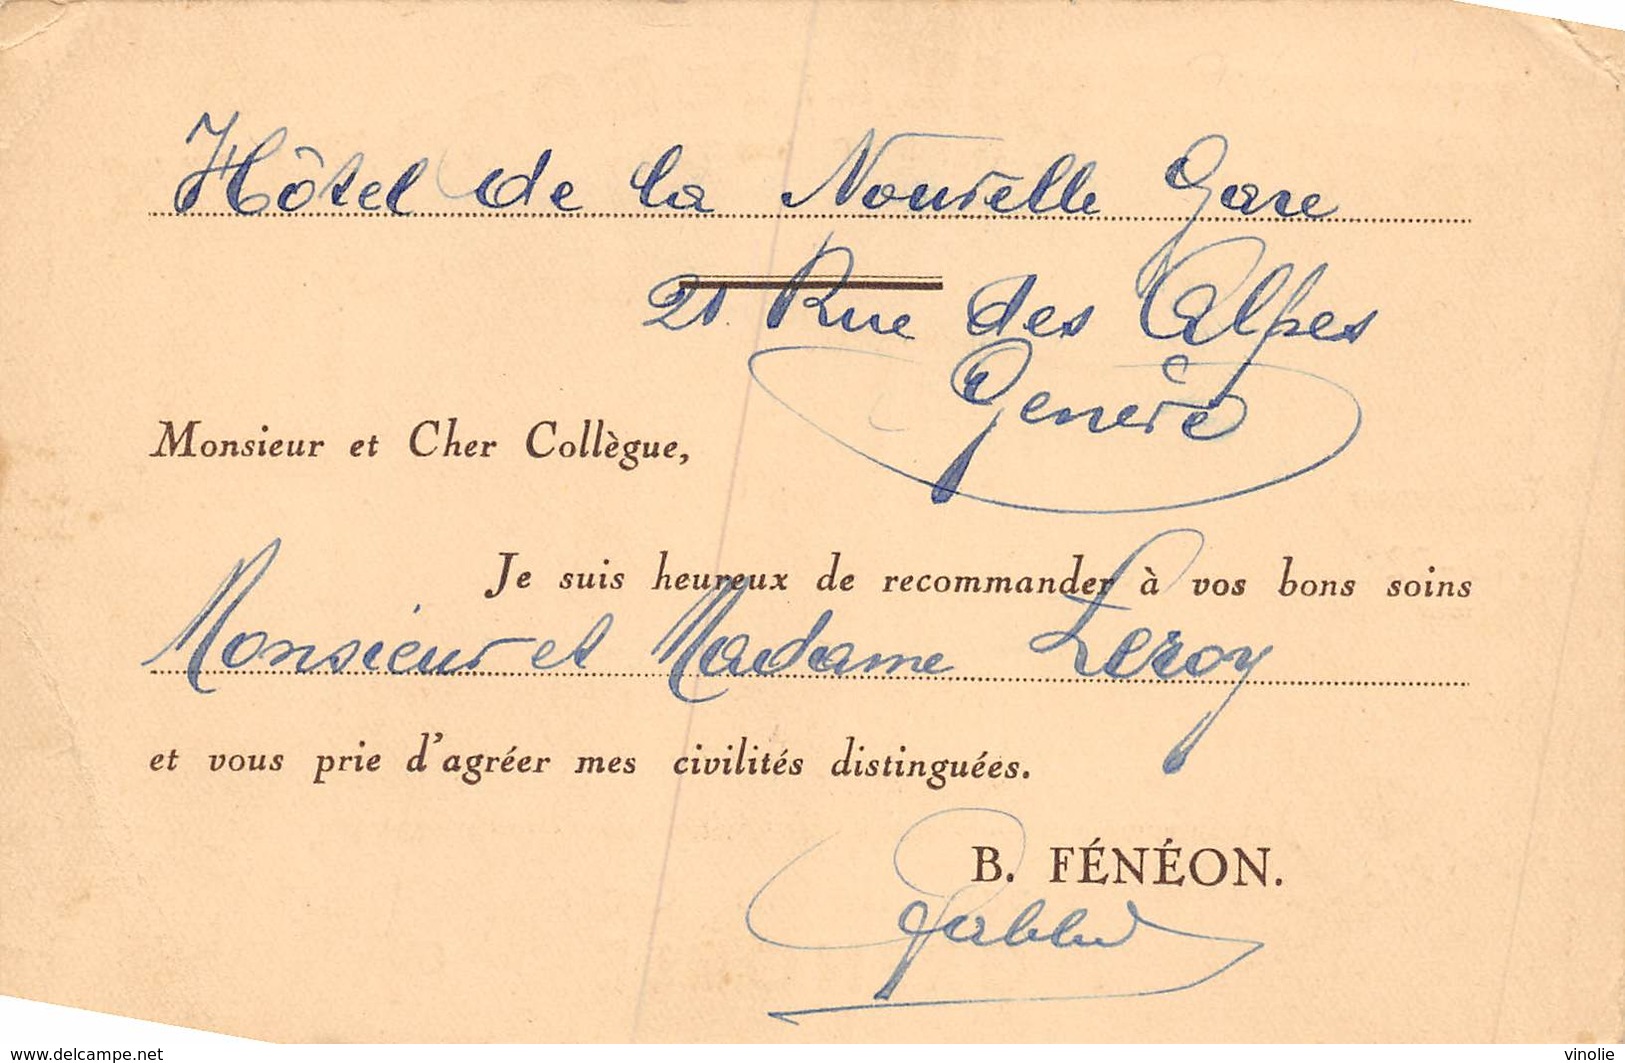 Hôtel de la Nouvelle Gare
21 Rue des Alpes
Genève
Monsieur et Cher Collègue,
Je suis heureux de recommander à vos bons soins
Monsieur et Madame Leroy
et vous prie d'agréer mes civilités distinguées.
B. FÉNÉON.
www.delcampe.net
vinolie